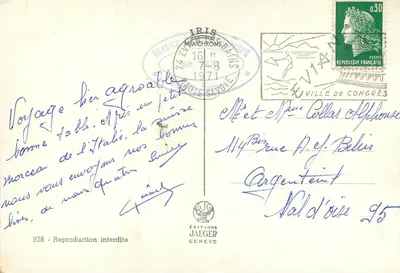 IRIS
74 EVIAN-LES-BAINS
16 H
7-8
1971
HAUTE-SAVOIE
EVIAN
VILLE DE CONGRÈS
0,30
REPUBLIQUE FRANÇAISE
POSTES
Voyage bien agréable
bonne table. Après un petit
morceau de l'Italie, la Suisse
nous vous envoyons nos bonnes
bises, de nous quatre
Mr et Mme Collas Alphonse
114 Bis rue A. J. Belin
Argenteuil
Val d'oise 95
928 - Reproduction interdite
ÉDITIONS
JAEGER
GENÈVE